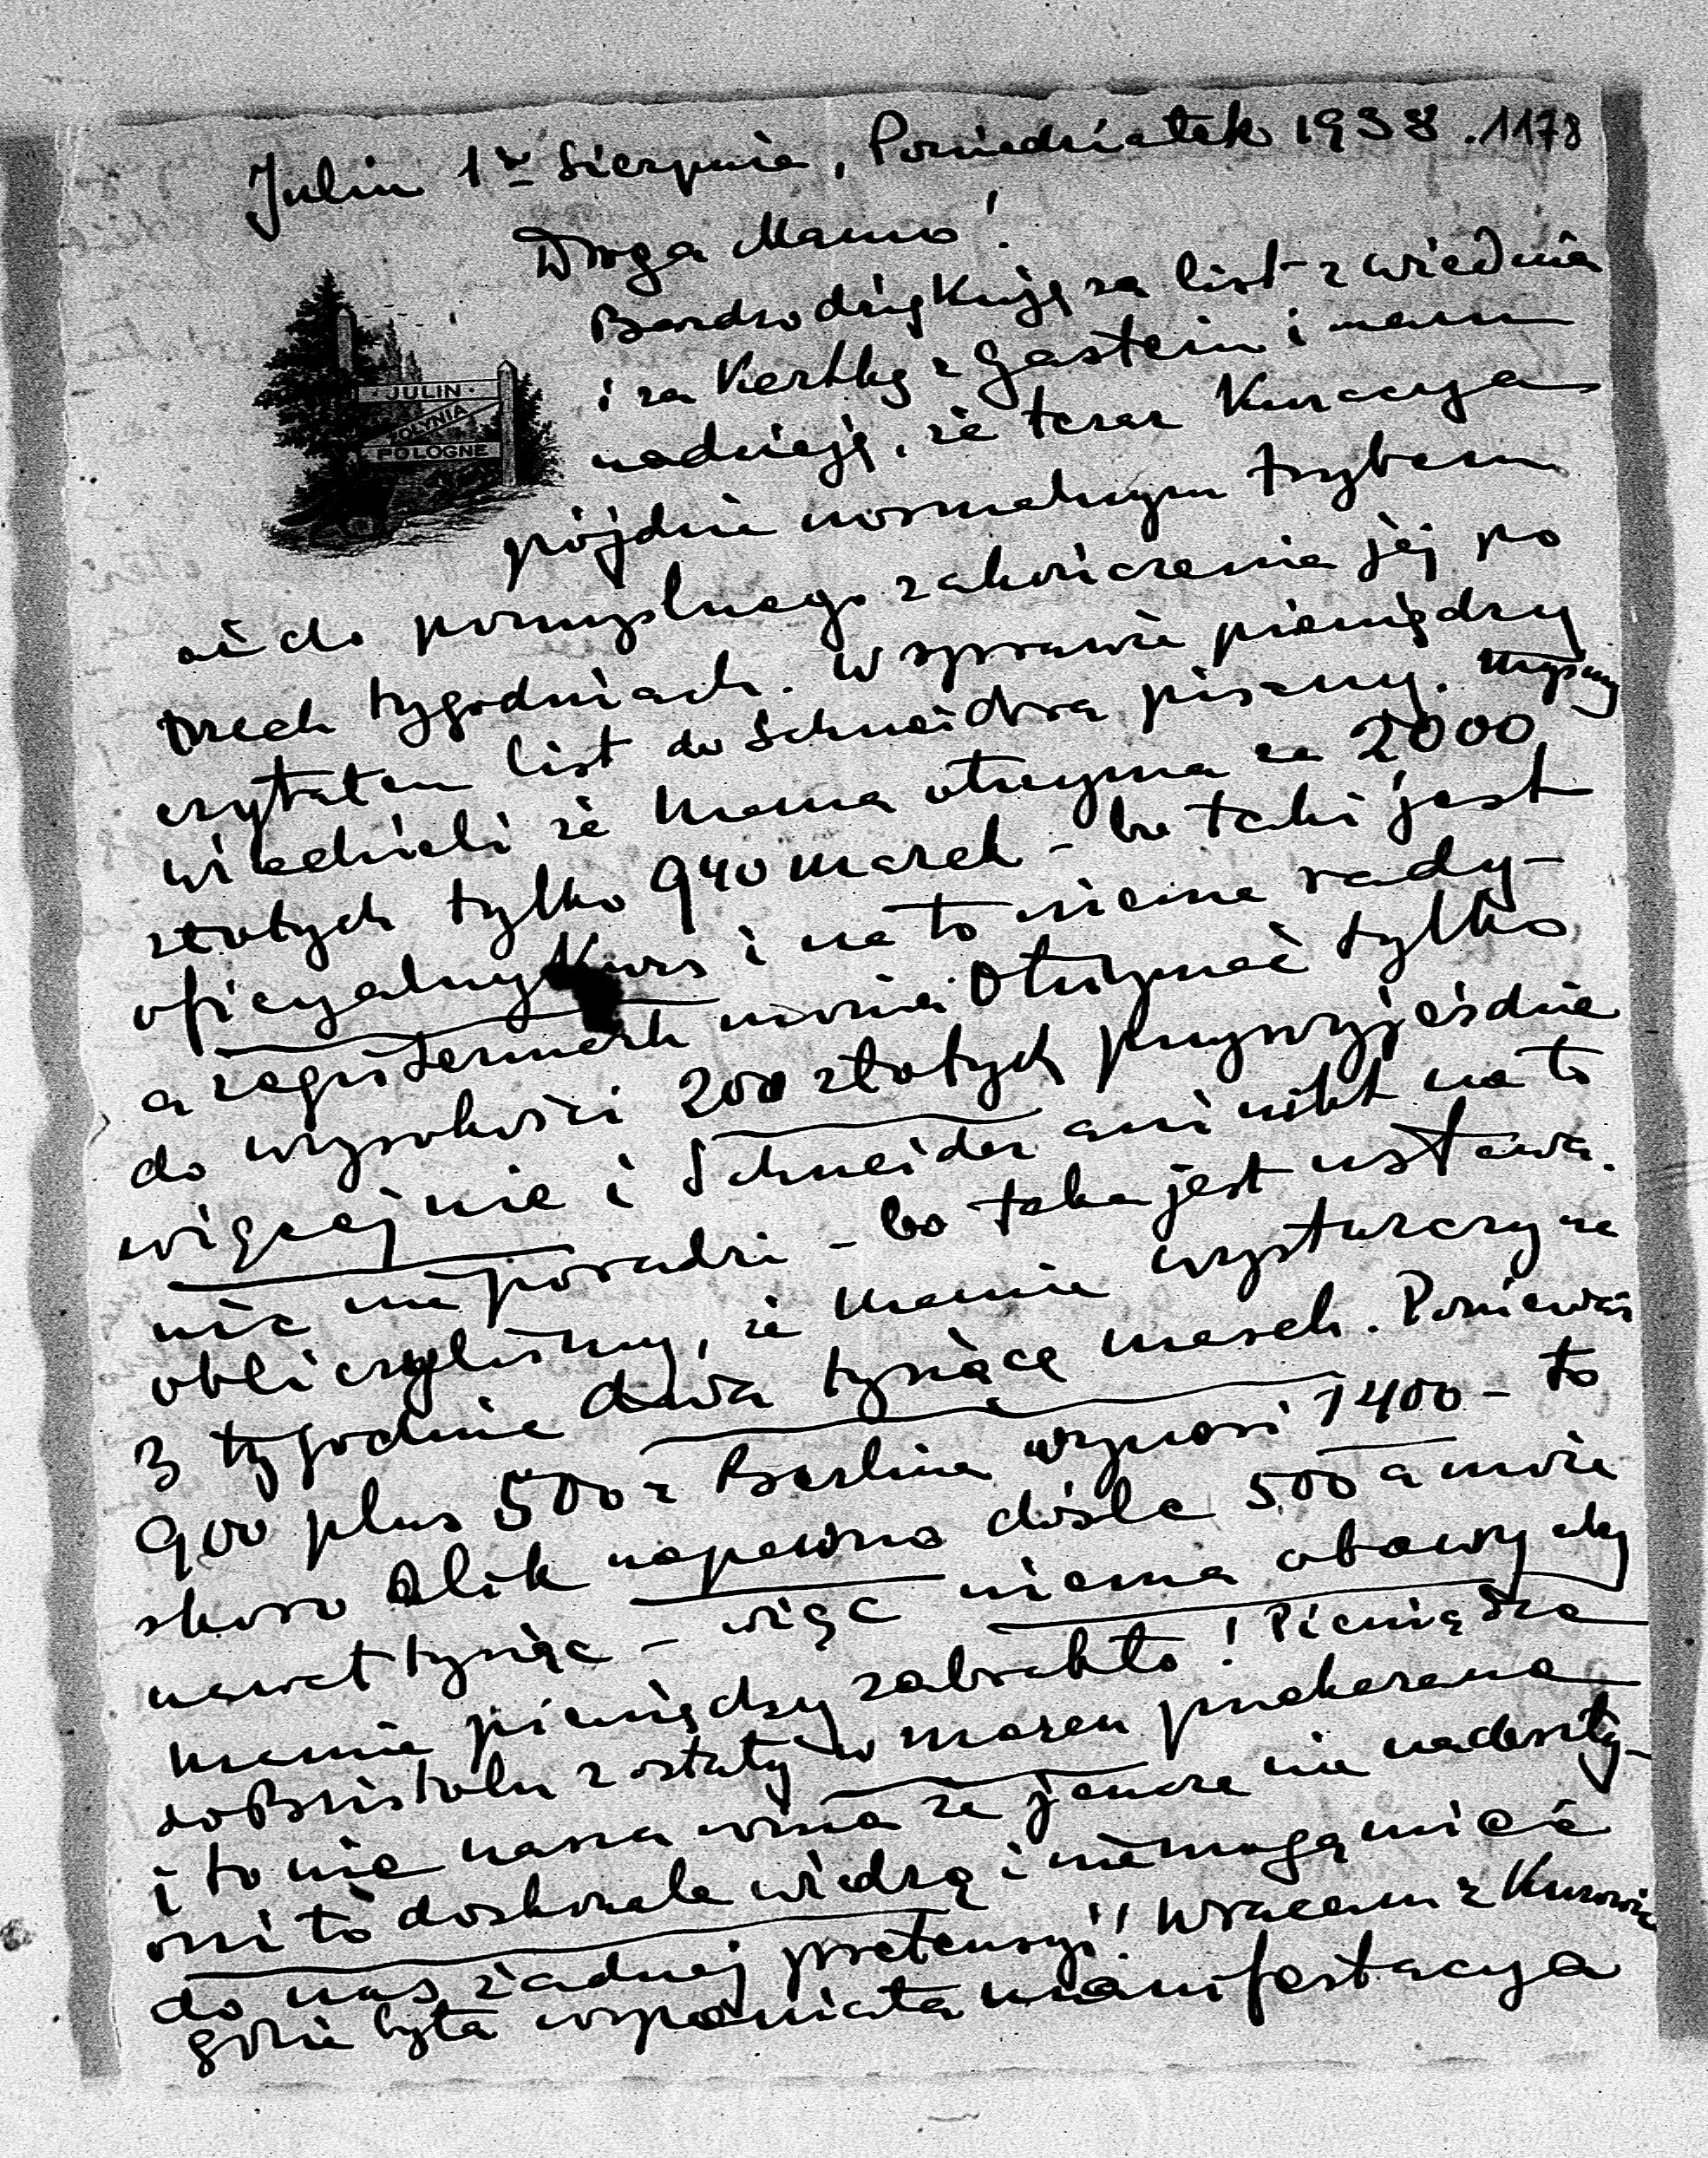 Julin 1go Sierpnia, Poniedziałek 1938. 1178
Droga Mamo!
Bardzo dziękuję za list z Wiednia
i za Kartkę z Gastein i mam
JULIN
nadzieję, że teraz Kuracya
ŻOŁYNIA
POLOGNE
pójdzie normalnym trybem
aż do pomyślnego zakończenia jej po
trzech tygodniach. W sprawie pieniędzy
czytałem list do Schneidra pisany. Myśmy
wiedzieli że Mama otrzyma za 2000
złotych tylko 940 marek - bo taki jest
oficyalny Kurs i na to niema rady -
a registermark można otrzymać tylko
do wysokości 200 złotych przy wyjeździe
więcej nie i Schneider ani nikt na to
nic nie poradzi - bo taka jest ustawa.
obliczyliśmy, że Mamie wystarczy na
3 tygodnie dwa tysiące marek. Ponieważ
900 plus 500 z Berlina wynosi 1400 - to
skoro Alik napewno dośle 500 a może
nawet tysiąc - więc niema obawy aby
Mamie pieniędzy zabrakło! Pieniądze
do Bristolu zostały w marcu przekazane
i to nie nasza wina że jeszcze nie nadeszły -
oni to doskonale wiedzą i nie mogą mieć
do nas żadnej pretensyi! Wracam z
gdzie była wspaniała manifestacya